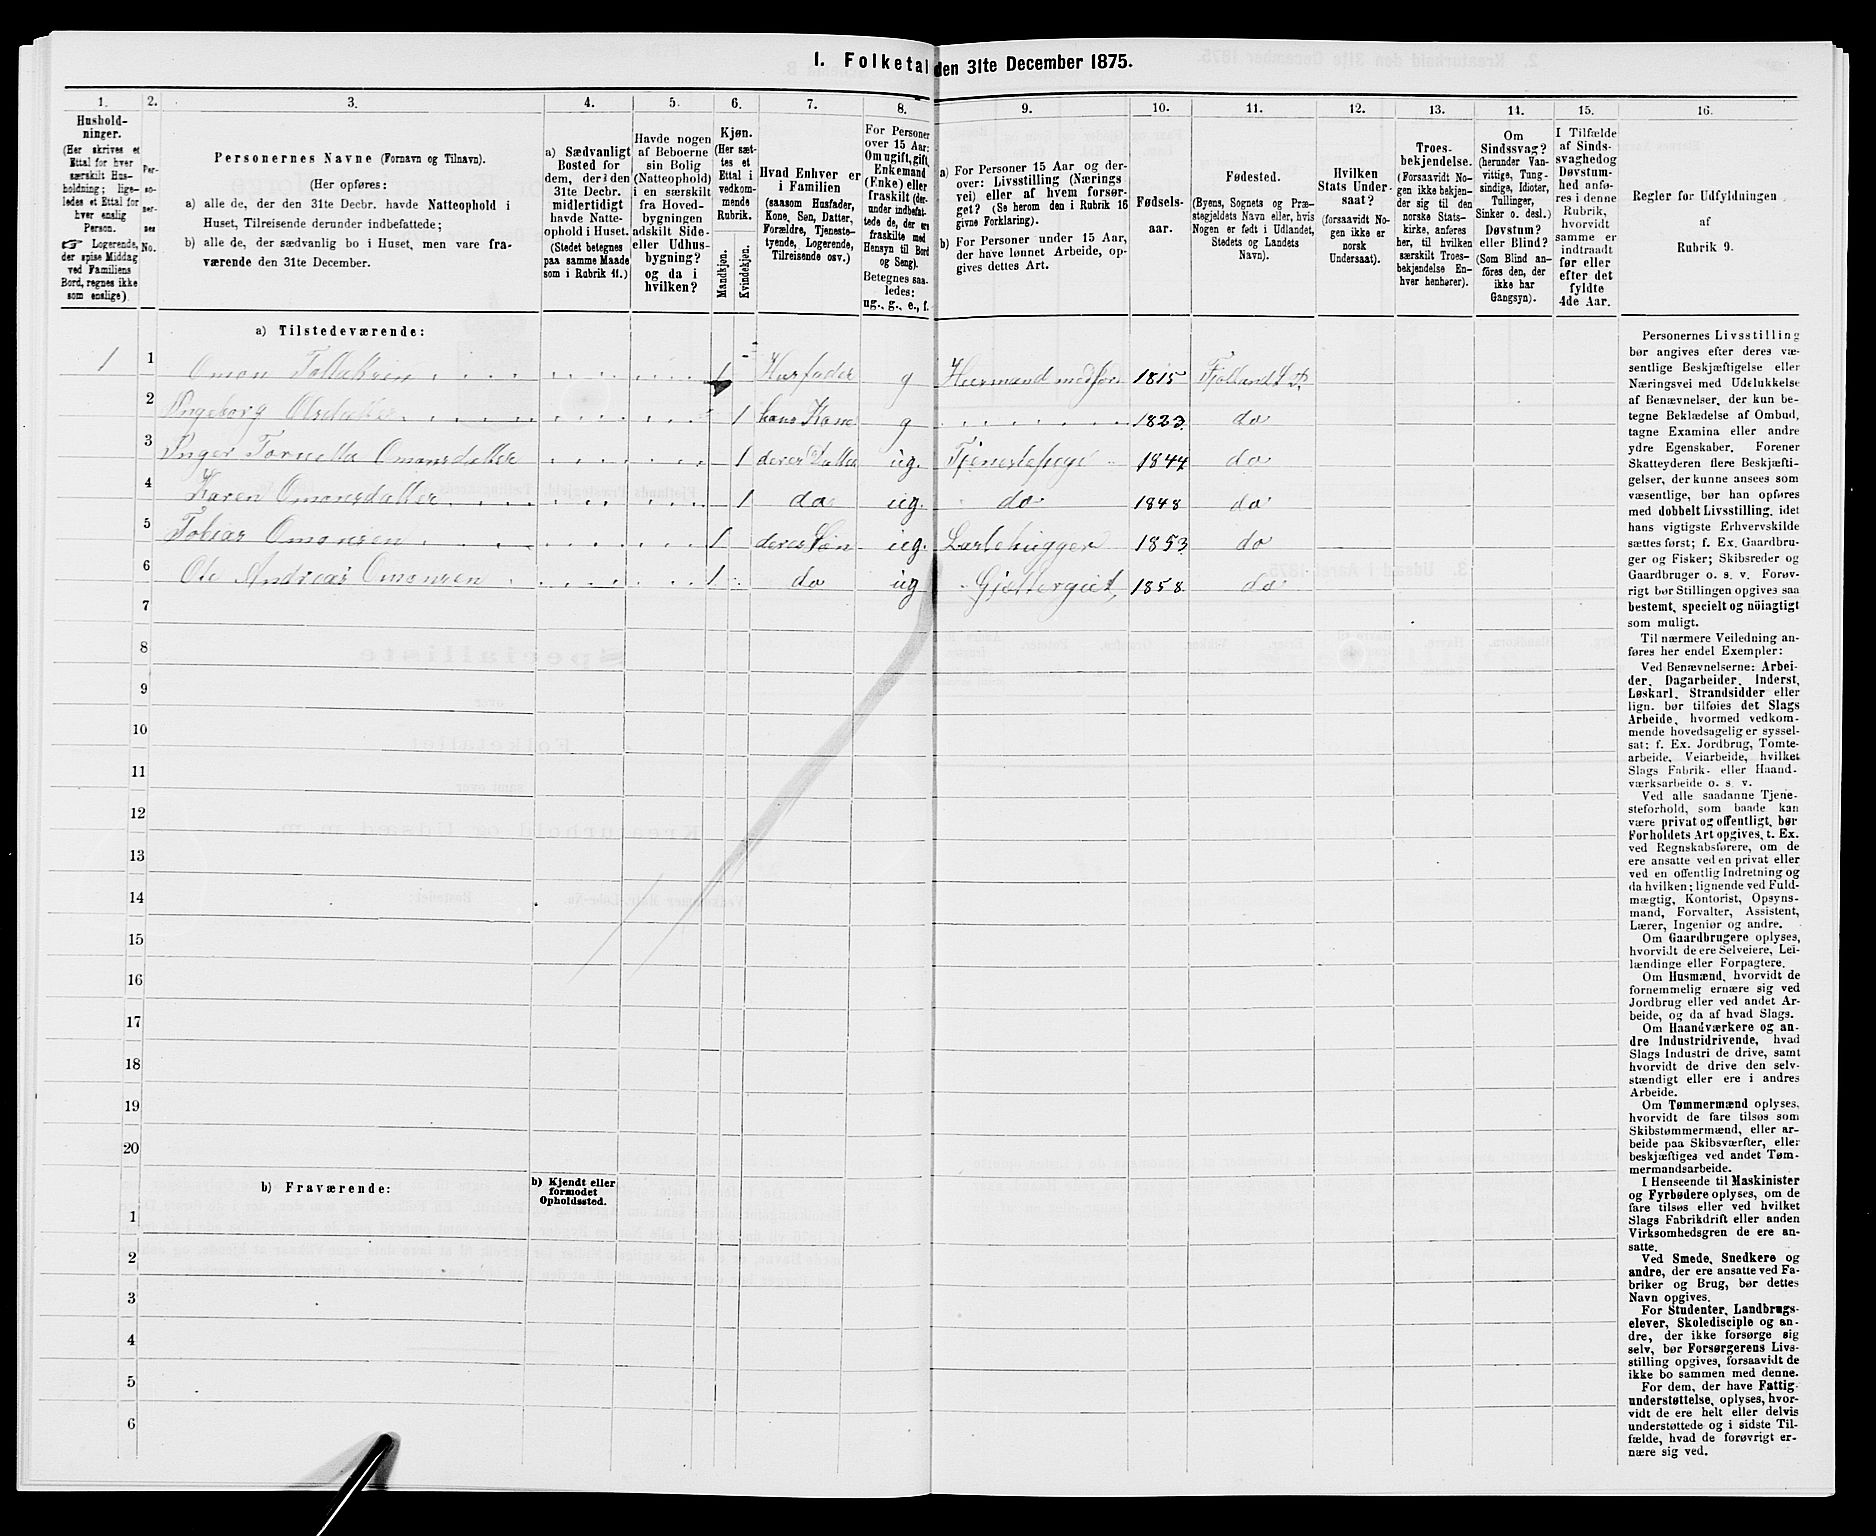 I. Folketal den 31te December 1875.
1. 2. 3. 4. 5. 6. 7. 8. 9. 10. 11. 12. 13. 14. 15. 16.
Hushold-
ninger.
(Her skrives et
Ettal for hver
særskilt Hus-
holdning; lige-
ledes et Ettal for
hver enslig
Person.
☞ Logerende,
der spise Middag
ved Familiens
Bord, regnes ikke
som enslige).
Per-
so-
ner-
nes
No.
Personernes Navne (Fornavn og Tilnavn).
(Her opføres:
a) alle de, der den 31te Decbr. havde Natteophold i
Huset, Tilreisende derunder indbefattede;
b) alle de, der sædvanlig bo i Huset, men vare fra-
værende den 31te December.
a) Sædvanligt
Bosted for
dem, der i den
31te Decbr.
midlertidigt
havde Natte-
ophold i Huset.
(Stedet betegnes
paa samme Maade
som i Rubrik 11.)
Havde nogen
af Beboerne
sin Bolig
(Natteophold)
i en særskilt
fra Hoved-
bygningen
adskilt Side-
eller Udhus-
bygning?
og da i
hvilken?
Kjøn.
(Her sæt-
tes et
Ettal i
vedkom-
mende
Rubrik.
Mandkjøn.
Kvindekjøn.
Hvad Enhver er
i Familien
(saasom Husfader,
Kone, Søn, Datter,
Forældre, Tjeneste-
tyende, Logerende,
Tilreisende osv.)
For Personer
over 15 Aar:
Om ugift, gift,
Enkemand
(Enke) eller
fraskilt (der-
under indbefat-
tede de, der ere
fraskilte med
Hensyn til Bord
og Seng).
Betegnes saa-
ledes:
ug., g., e., f.
a) For Personer 15 Aar og der-
over: Livsstilling (Nærings
vei) eller af hvem forsør-
get? (Se herom den i Rubrik 16
givne Forklaring).
b) For Personer under 15 Aar,
der have lønnet Arbeide, op-
gives dettes Art.
Fødsels-
aar.
Fødested.
(Byens, Sognets og Præ-
stegjeldets Navn eller, hvis
Nogen er født i Udlandet,
Stedets og Landets
Navn).
Hvilken
Stats Under-
saat?
(forsaavidt No-
gen ikke er
norsk
Undersaat).
Troes-
bekjendelse.
(Forsaavidt No-
gen ikke bekjen-
der sig til den
norske Stats-
kirke, anføres
her, til hvilken
særskilt Troes-
bekjendelse En-
hver henhører).
Om
Sindssvag?
(herunder Van-
vittige, Tung-
sindige, Idioter,
Tullinger,
Sinker o. desl.)
Døvstum?
eller Blind?
(Som Blind an-
føres den, der
ikke har
Gangsyn).
I Tilfælde
af Sinds-
svaghedog
Døvstum-
hed anfø-
res i denne
Rubrik,
hvorvidt
samme er
indtraadt
før eller
efter det
fyldte
4de Aar.
Regler for Udfyldningen
af
Rubrik 9.
a) Tilstedeværende:
1 1 Omon Tallaksen 1 Husfader g Huusmand med Jord 1815 Fjotland S. P.
2 Ingeborg Olsdatter 1 hans Kone g 1823 do
3 Inger Tomette Omonsdatter 1 deres Datter ug. Tjenestepige 1844 do
4 Karen Omonsdatter 1 do ug. do 1848 do
5 Tobias Omonsen 1 deres Søn ug. 1853 do
6 Ole Andreas Omonsen 1 do ug Gjættergut 1858 do
7
8
9
10
11
12
13
14
15
16
17
18
19
20
b) Fraværende:
b) Kjendt eller
formodet
Opholdssted.
1
2
3
4
5
6
Personernes Livsstilling
bør angives efter deres væ-
sentlige Beskjæftigelse eller
Næringsvei med Udelukkelse
af Benævnelser, der kun be-
tegne Beklædelse af Ombud,
tagne Examina eller andre
ydre Egenskaber. Forener
Skatteyderen flere Beskjæfti-
gelser, der kunne ansees som
væsentlige, bør han opføres
med dobbelt Livsstilling, idet
hans vigtigste Erhvervskilde
sættes først; f. Ex. Gaardbru-
ger og Fisker; Skibsreder og
Gaardbruger o. s. v. Forøv-
rigt bør Stillingen opgives saa
bestemt, specielt og nöiagtigt
som muligt.
Til nærmere Veiledning an-
føres her endel Exempler:
Ved Benævnelserne: Arbei-
der, Dagarbeider, Inderst,
Løskarl, Strandsidder eller
lign. bør tilføies det Slags
Arbeide, hvormed vedkom-
mende hovedsagelig er syssel-
sat: f. Ex. Jordbrug, Tomte-
arbeide, Veiarbeide, hvilket
Slags Fabrik- eller Haand-
værksarbeide o. s. v.
Ved alle saadanne Tjene-
steforhold, som baade kan
være privat og offentligt, bør
Forholdets Art opgives, t. Ex.
ved Regnskabsførere, om de
ere ansatte ved en privat eller
ved en offentlig Indretning og
da hvilken; lignende ved Fuld-
mægtig, Kontorist, Opsyns-
mand, Forvalter, Assistent,
Lærer, Ingeniør og andre.
Om Gaardbrugere oplyses,
hvorvidt de ere Selveiere, Lei-
lændinge eller Forpagtere.
Om Husmænd, hvorvidt de
fornemmelig ernære sig ved
Jordbrug eller ved andet Ar-
beide, og da af hvad Slags.
Om Haandværkere og an-
dre Industridrivende, hvad
Slags Industri de drive, samt
hvorvidt de drive den selv-
stændigt eller ere i andres
Arbeide.
Om Tømmermænd oplyses,
hvorvidt de fare tilsøs som
Skibstømmermænd, eller ar-
beide paa Skibsværfter, eller
beskjæftiges ved andet Tøm-
mermandsarbeide.
I Henseende til Maskinister
og Fyrbødere oplyses, om de
fare tilsøs eller ved hvilket
Slags Fabrikdrift eller anden
Virksomhedsgren de ere an-
satte.
Ved Smede, Snedkere og
andre, der ere ansatte ved Fa-
briker og Brug, bør dettes
Navn opgives.
For Studenter, Landbrugs-
elever, Skoledisciple og an-
dre, der ikke forsørge sig
selv, bør Forsørgerens Livs-
stilling opgives, forsaavidt de
ikke bo sammen med denne.
For dem, der have Fattig-
understøttelse, oplyses, hvor-
vidt de ere helt eller delvis
understøttede og i sidste Til-
fælde, hvad de forøvrigt er-
nære sig ved.